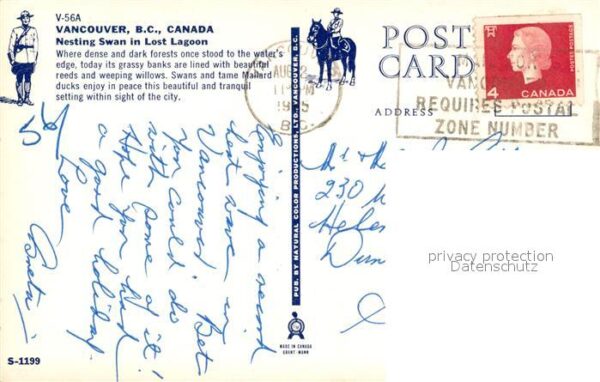 V-56A
VANCOUVER, B.C., CANADA
Nesting Swan in Lost Lagoon
Where dense and dark forests once stood to the water's
edge, today its grassy banks are lined with beautiful
reeds and weeping willows. Swans and tame Mallard
ducks enjoy in peace this beautiful and tranquil
setting within sight of the city.
POST
CARD
ADDRESS
4
CANADA
POSTES POSTAGE
VANCOUVER
REQUIRES POSTAL
ZONE NUMBER
AU
B.C.
PUB. BY NATURAL COLOR PRODUCTIONS, LTD., VANCOUVER, B.C.
Enjoying a record
heat wave in
Vancouver! Bet
You could do
with some of it!
Hope you had
a good holiday.
Love
Greta
230
privacy protection
Datenschutz
MADE IN CANADA
GRANT-MANN
S-1199